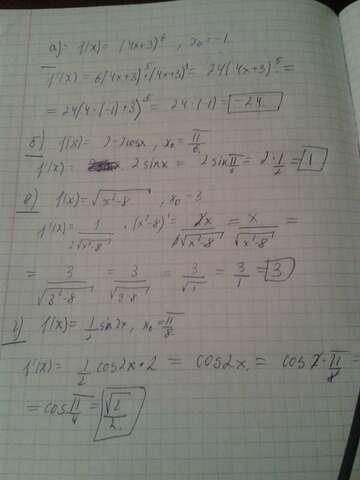 а) f(x) = (4x+3)⁶, x₀ = -1.
f'(x) = 6(4x+3)⁵·(4x+3)' = 24(4x+3)⁵ =
= 24(4·(-1)+3)⁵ = 24·(-1) = -24.
б) f(x) = 3-2cosx, x₀ = π/6
f'(x) = 2sinx = 2sin π/6 = 2·1/2 = 1
в) f(x) = √(x²-8), x₀ = 3
f'(x) = 1/(2√(x²-8)) · (x²-8)' = 2x/(2√(x²-8)) = x/√(x²-8) =
= 3/√(3²-8) = 3/√(9-8) = 3/√1 = 3/1 = 3
г) f(x) = 1/2 sin2x, x₀ = π/8
f'(x) = 1/2 cos2x·2 = cos2x = cos2·π/8 =
= cos π/4 = √2/2.